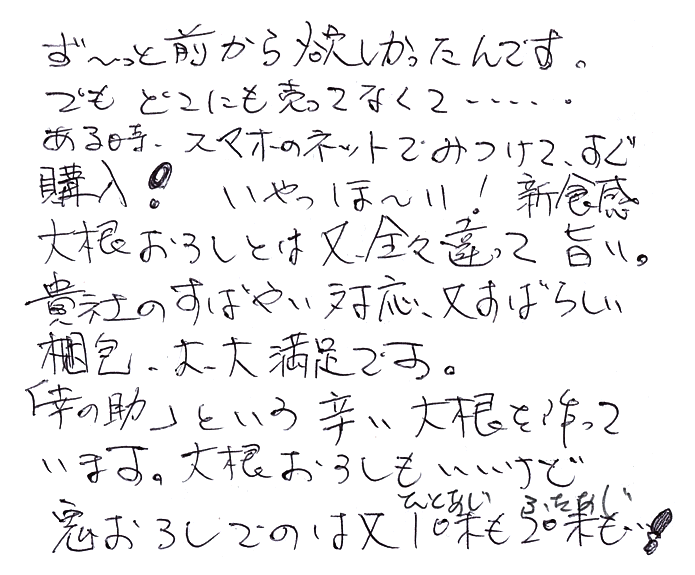 ず〜っと前から欲しかったんです。
でもどこにも売ってなくて・・・・・
ある時、スマホのネットでみつけて、すぐ
購入! いやっほ〜い! 新食感
大根おろしとは又、全々違って旨い。
貴社のすばやい対応、又すばらしい
梱包、大、大満足です。
「辛の助」という辛い大根を作って
います。大根おろしもいいけど
鬼おろしでのは又1味も2味も…!
ひとあじ ふたあじ